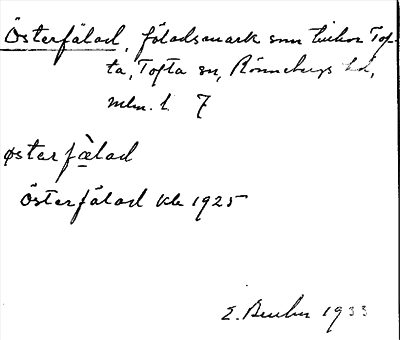 Österfälad, fäladsmark som tillhör Tof-
ta, Tofta sn, Rönnebergs hd,
Mlm. l. 7
østerfæ̀lad
Österfälad kb 1925
E. 1933